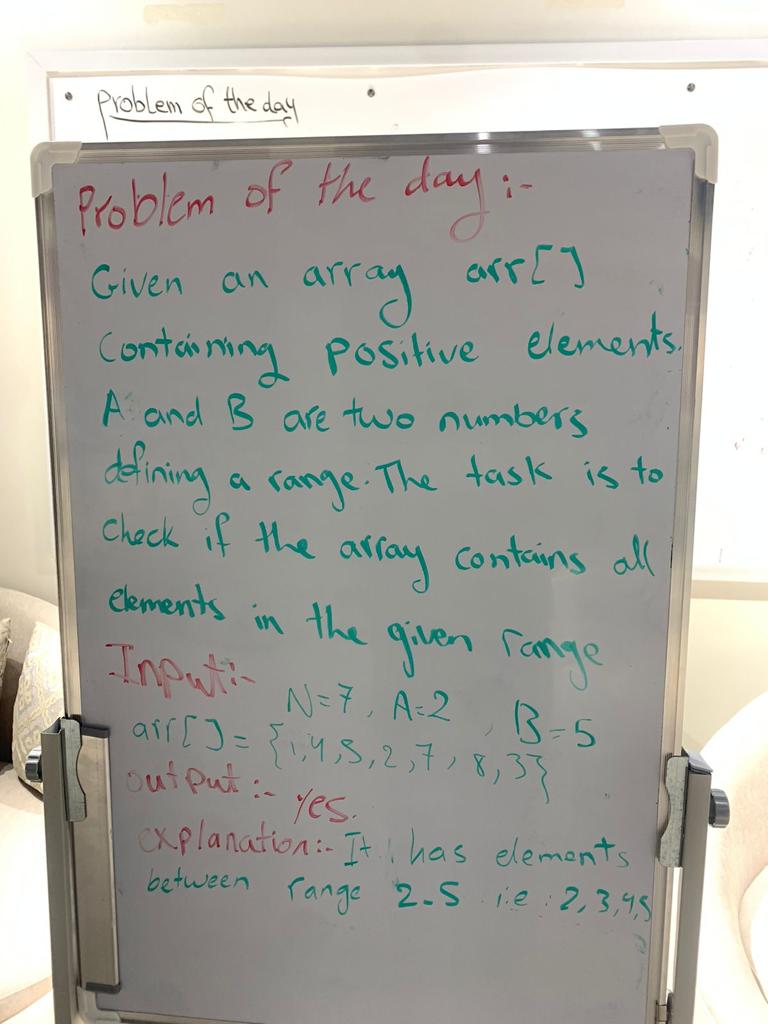 Problem of the day
Problem of the day :-
Given an array arr[]
Containing positive elements.
A and B are two numbers
defining a range. The task is to
check if the array contains all
elements in the given range
Input:-
N=7, A=2, B=5
arr[] = {1,4,5,2,7,8,3}
output:- yes.
explanation:- It has elements
between range 2-5 i.e : 2,3,4,5